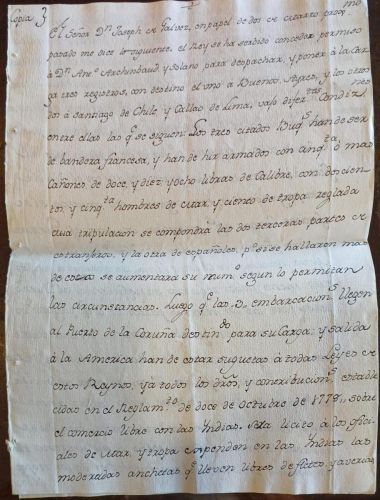 Copia 3
El Señor Dn Joseph de Galvez, en papel de dos de este mes proxmo
pasado me dice lo siguiente. el Rey se ha servido conceder permiso
á Dn Anto Archimbaud y Solano para despachar, y poner á la Car
ga tres registros, con destino el uno á Buenos-Ayres, y los otros
dos á Santiago de Chile, y Callao de Lima, vajo difertes Condizns
entre ellas las qe se siguen: Los tres citados Buqs han de ser
de bandera francesa, y han de hir armados con cinqta ó mas
Cañones, de doce, y diez y ocho libras de Calibre, con doscien
tos, y cinqta hombres de mar, y ciento de tropa reglada
cuia tripulacion se compondrá las dos terceras partes de
estrangeros, y la otra de españoles, pr si se hallaren mas
de estos se aumentará su numo segun lo permitan
las circunstancias. Luego qe las Ds embarcacions lleguen
al Puerto de la Coruña destindo para su Carga, y salida
á la America han de estar sugetas á todas Leyes de
estos Reynos, y a todos los dros, y contribucions estable
cidas en el Reglamto de doce de Octubre de 1778, sobre
el comercio libre con las Indias. Será licito á los oficia
les de mar, y tropa expenden en las Indias las
moderadas anchetas qe lleven libres de fletes y averias